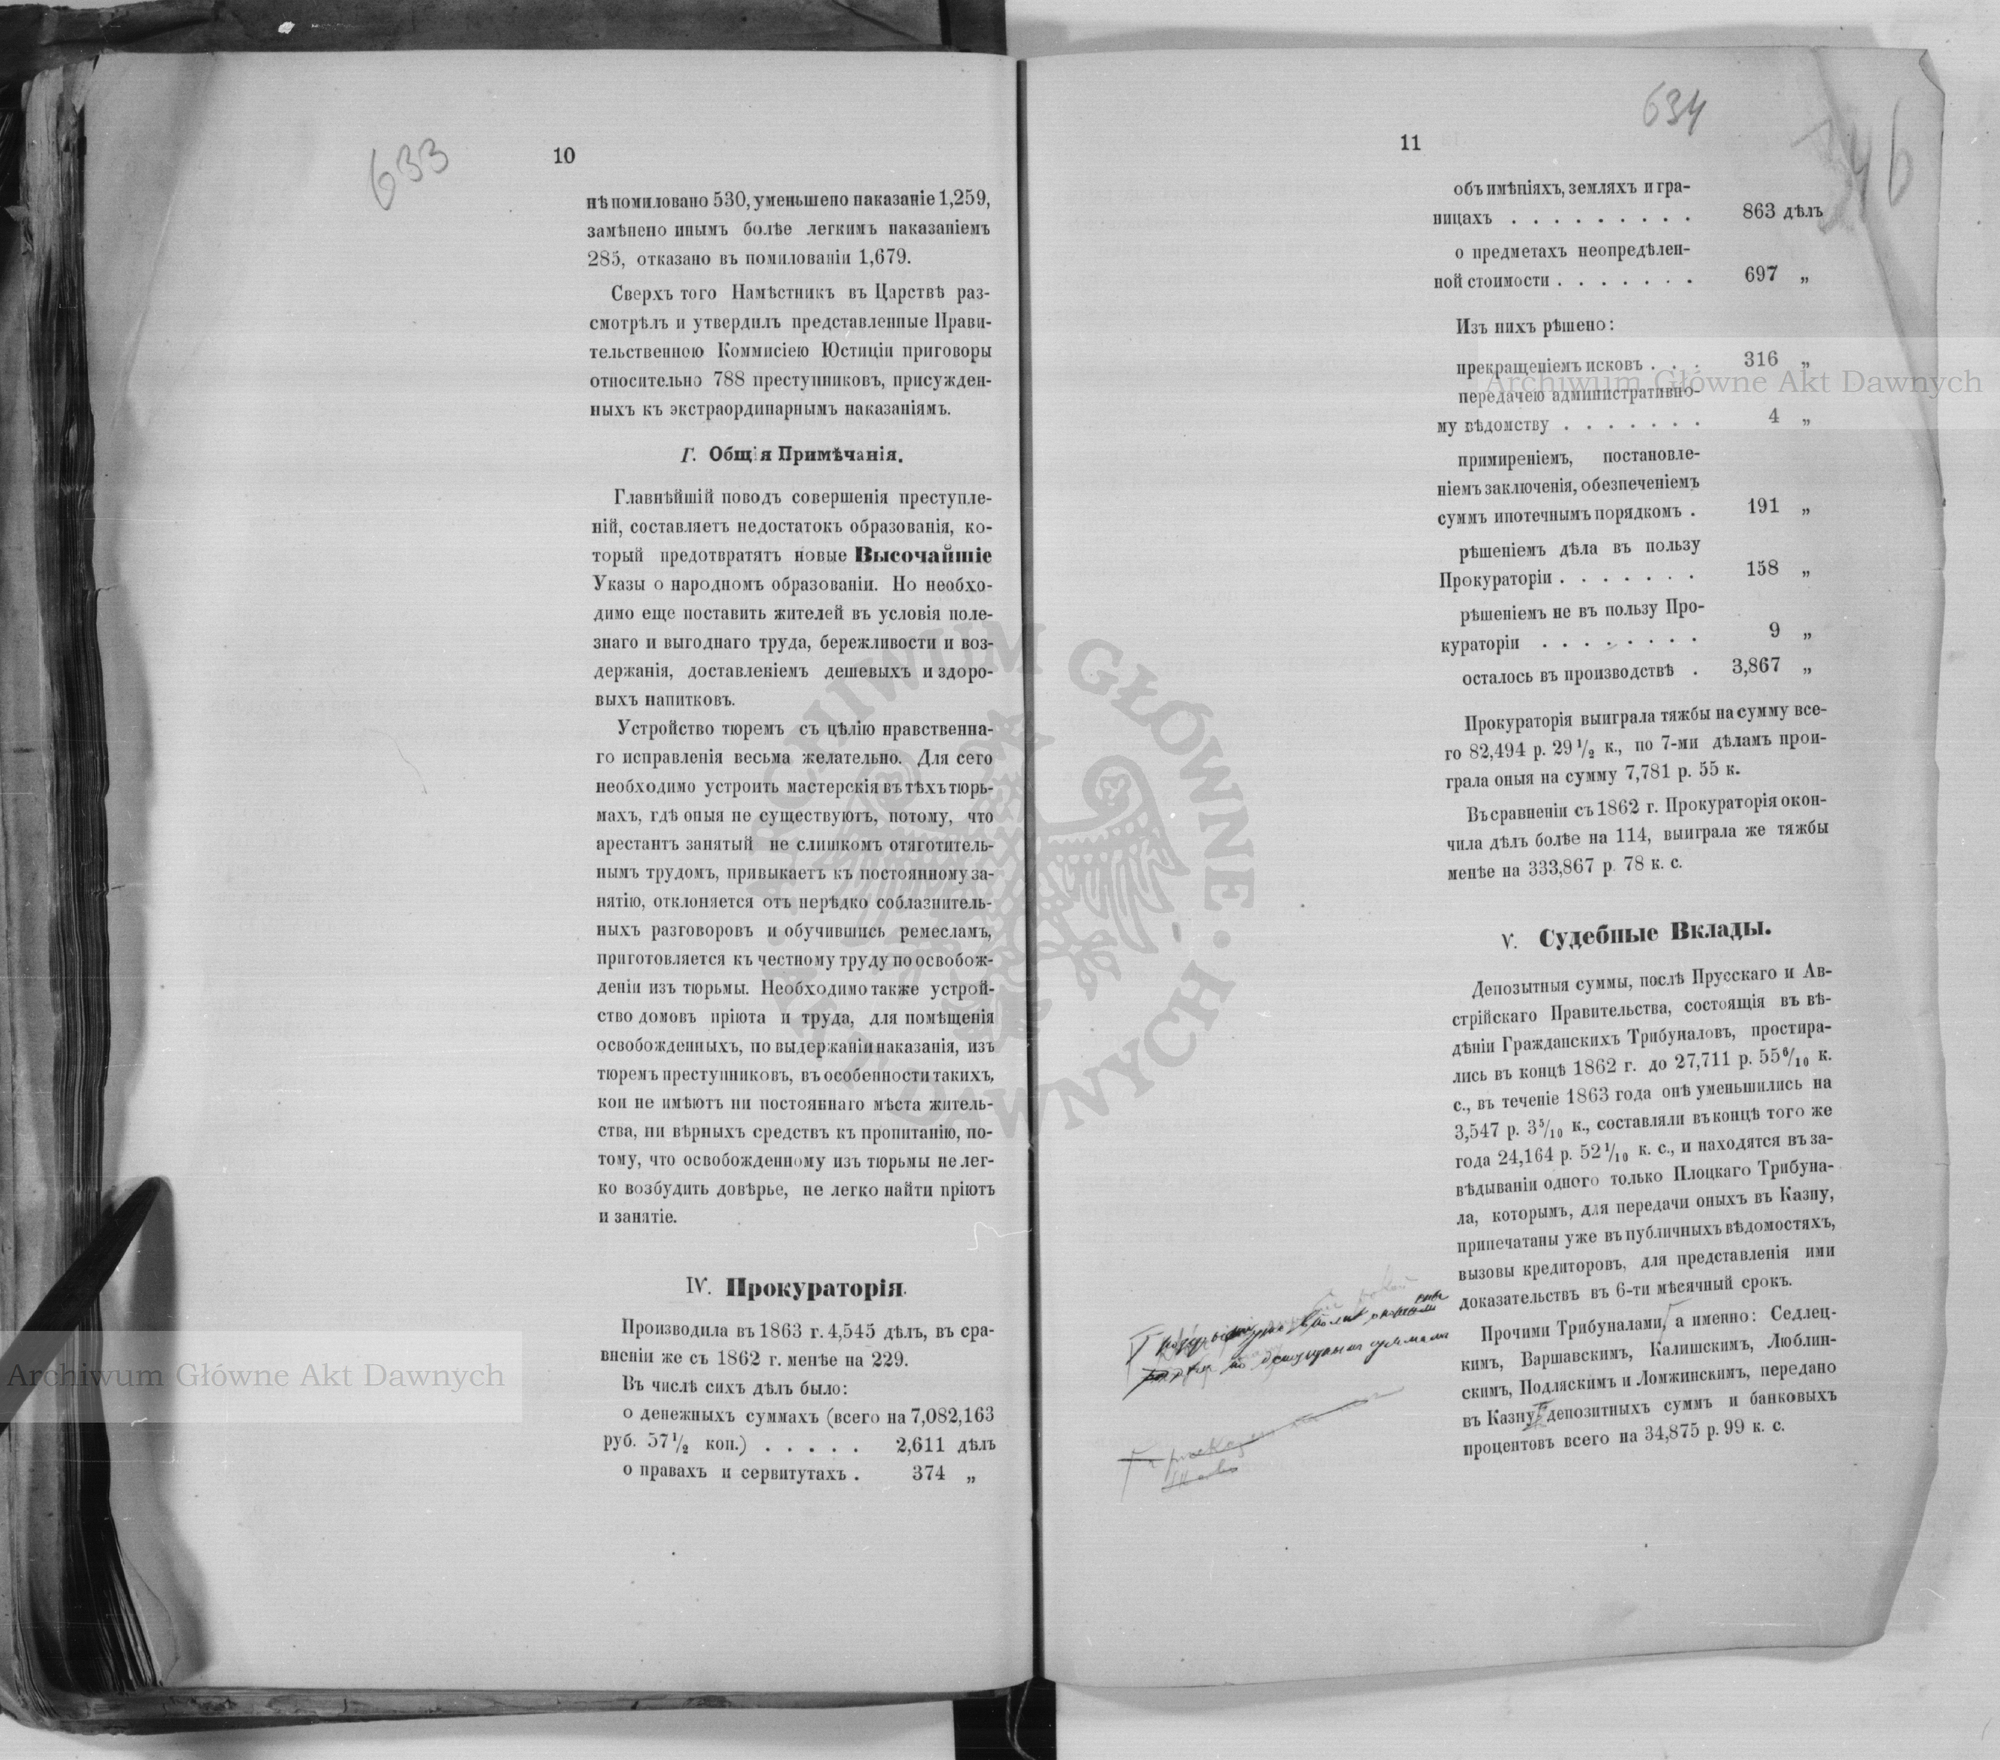 633
10
нѣ помиловано 530, уменьшено наказаніе 1,259,
замѣнено инымъ болѣе легкимъ наказаніемъ
285, отказано въ помилованіи 1,679.
Сверхъ того Намѣстникъ въ Царствѣ раз-
смотрѣлъ и утвердилъ представленные Прави-
тельственною Коммисіею Юстиціи приговоры
относительно 788 преступниковъ, присужден-
ныхъ къ экстраординарнымъ наказаніямъ.
Г. Общія Примѣчанія.
Главнѣйшій поводъ совершенія преступле-
ній, составляетъ недостатокъ образованія, ко-
торый предотвратятъ новые Высочайшіе
Указы о народномъ образованіи. Но необхо-
димо еще поставить жителей въ условія поле-
знаго и выгоднаго труда, бережливости и воз-
держанія, доставленіемъ дешевыхъ и здоро-
выхъ напитковъ.
Устройство тюремъ съ цѣлію нравственна-
го исправленія весьма желательно. Для сего
необходимо устроить мастерскія въ тѣхъ тюрь-
махъ, гдѣ оныя не существуютъ, потому, что
арестантъ занятый не слишкомъ отяготитель-
нымъ трудомъ, привыкаетъ къ постоянному за-
нятію, отклоняется отъ нерѣдко соблазнитель-
ныхъ разговоровъ и обучившись ремесламъ,
приготовляется къ честному труду по освобож-
деніи изъ тюрьмы. Необходимо также устрой-
ство домовъ пріюта и труда, для помѣщенія
освобожденныхъ, по выдержаніи наказанія, изъ
тюремъ преступниковъ, въ особенности такихъ,
кои не имѣютъ ни постояннаго мѣста житель-
ства, ни вѣрныхъ средствъ къ пропитанію, по-
тому, что освобожденному изъ тюрьмы не лег-
ко возбудить довѣрье, не легко найти пріютъ
и занятіе.
IV. Прокураторія.
Производила въ 1863 г. 4,545 дѣлъ, въ сра-
вненіи же съ 1862 г. менѣе на 229.
Въ числѣ сихъ дѣлъ было:
о денежныхъ суммахъ (всего на 7,082,163
руб. 57 1/2 коп.) . . . . . 2,611 дѣлъ
о правахъ и сервитутахъ . 374 „
634
11
46
объ имѣніяхъ, земляхъ и гра-
ницахъ . . . . . . . . . 863 дѣлъ
о предметахъ неопредѣлен-
ной стоимости . . . . . . . 697 „
Изъ нихъ рѣшено:
прекращеніемъ исковъ . . . 316 „
передачею административно-
му вѣдомству . . . . . . . 4 „
примиреніемъ, постановле-
ніемъ заключенія, обезпеченіемъ
суммъ ипотечнымъ порядкомъ . 191 „
рѣшеніемъ дѣла въ пользу
Прокураторіи . . . . . . . 158 „
рѣшеніемъ не въ пользу Про-
кураторіи . . . . . . . . 9 „
осталось въ производствѣ . 3,867 „
Прокураторія выиграла тяжбы на сумму все-
го 82,494 р. 29 1/2 к., по 7-ми дѣламъ прои-
грала оныя на сумму 7,781 р. 55 к.
Въ сравненіи съ 1862 г. Прокураторія окон-
чила дѣлъ болѣе на 114, выиграла же тяжбы
менѣе на 333,867 р. 78 к. с.
V. Судебные Вклады.
Депозытныя суммы, послѣ Прусскаго и Ав-
стрійскаго Правительства, состоящія въ вѣ-
дѣніи Гражданскихъ Трибуналовъ, простира-
лись въ концѣ 1862 г. до 27,711 р. 55 6/10 к.
с., въ теченіе 1863 года онѣ уменьшились на
3,547 р. 3 5/10 к., составляли въ концѣ того же
года 24,164 р. 52 1/10 к. с., и находятся въ за-
вѣдываніи одного только Плоцкаго Трибуна-
ла, которымъ, для передачи оныхъ въ Казну,
припечатаны уже въ публичныхъ вѣдомостяхъ,
вызовы кредиторовъ, для представленія ими
доказательствъ въ 6-ти мѣсячный срокъ.
Прочими Трибуналами, а именно: Седлец-
кимъ, Варшавскимъ, Калишскимъ, Люблин-
скимъ, Подляскимъ и Ломжинскимъ, передано
въ Казну депозитныхъ суммъ и банковыхъ
процентовъ всего на 34,875 р. 99 к. с.
Archiwum Główne Akt Dawnych
Archiwum Główne Akt Dawnych
ARCHIWUM GŁÓWNE AKT DAWNYCH